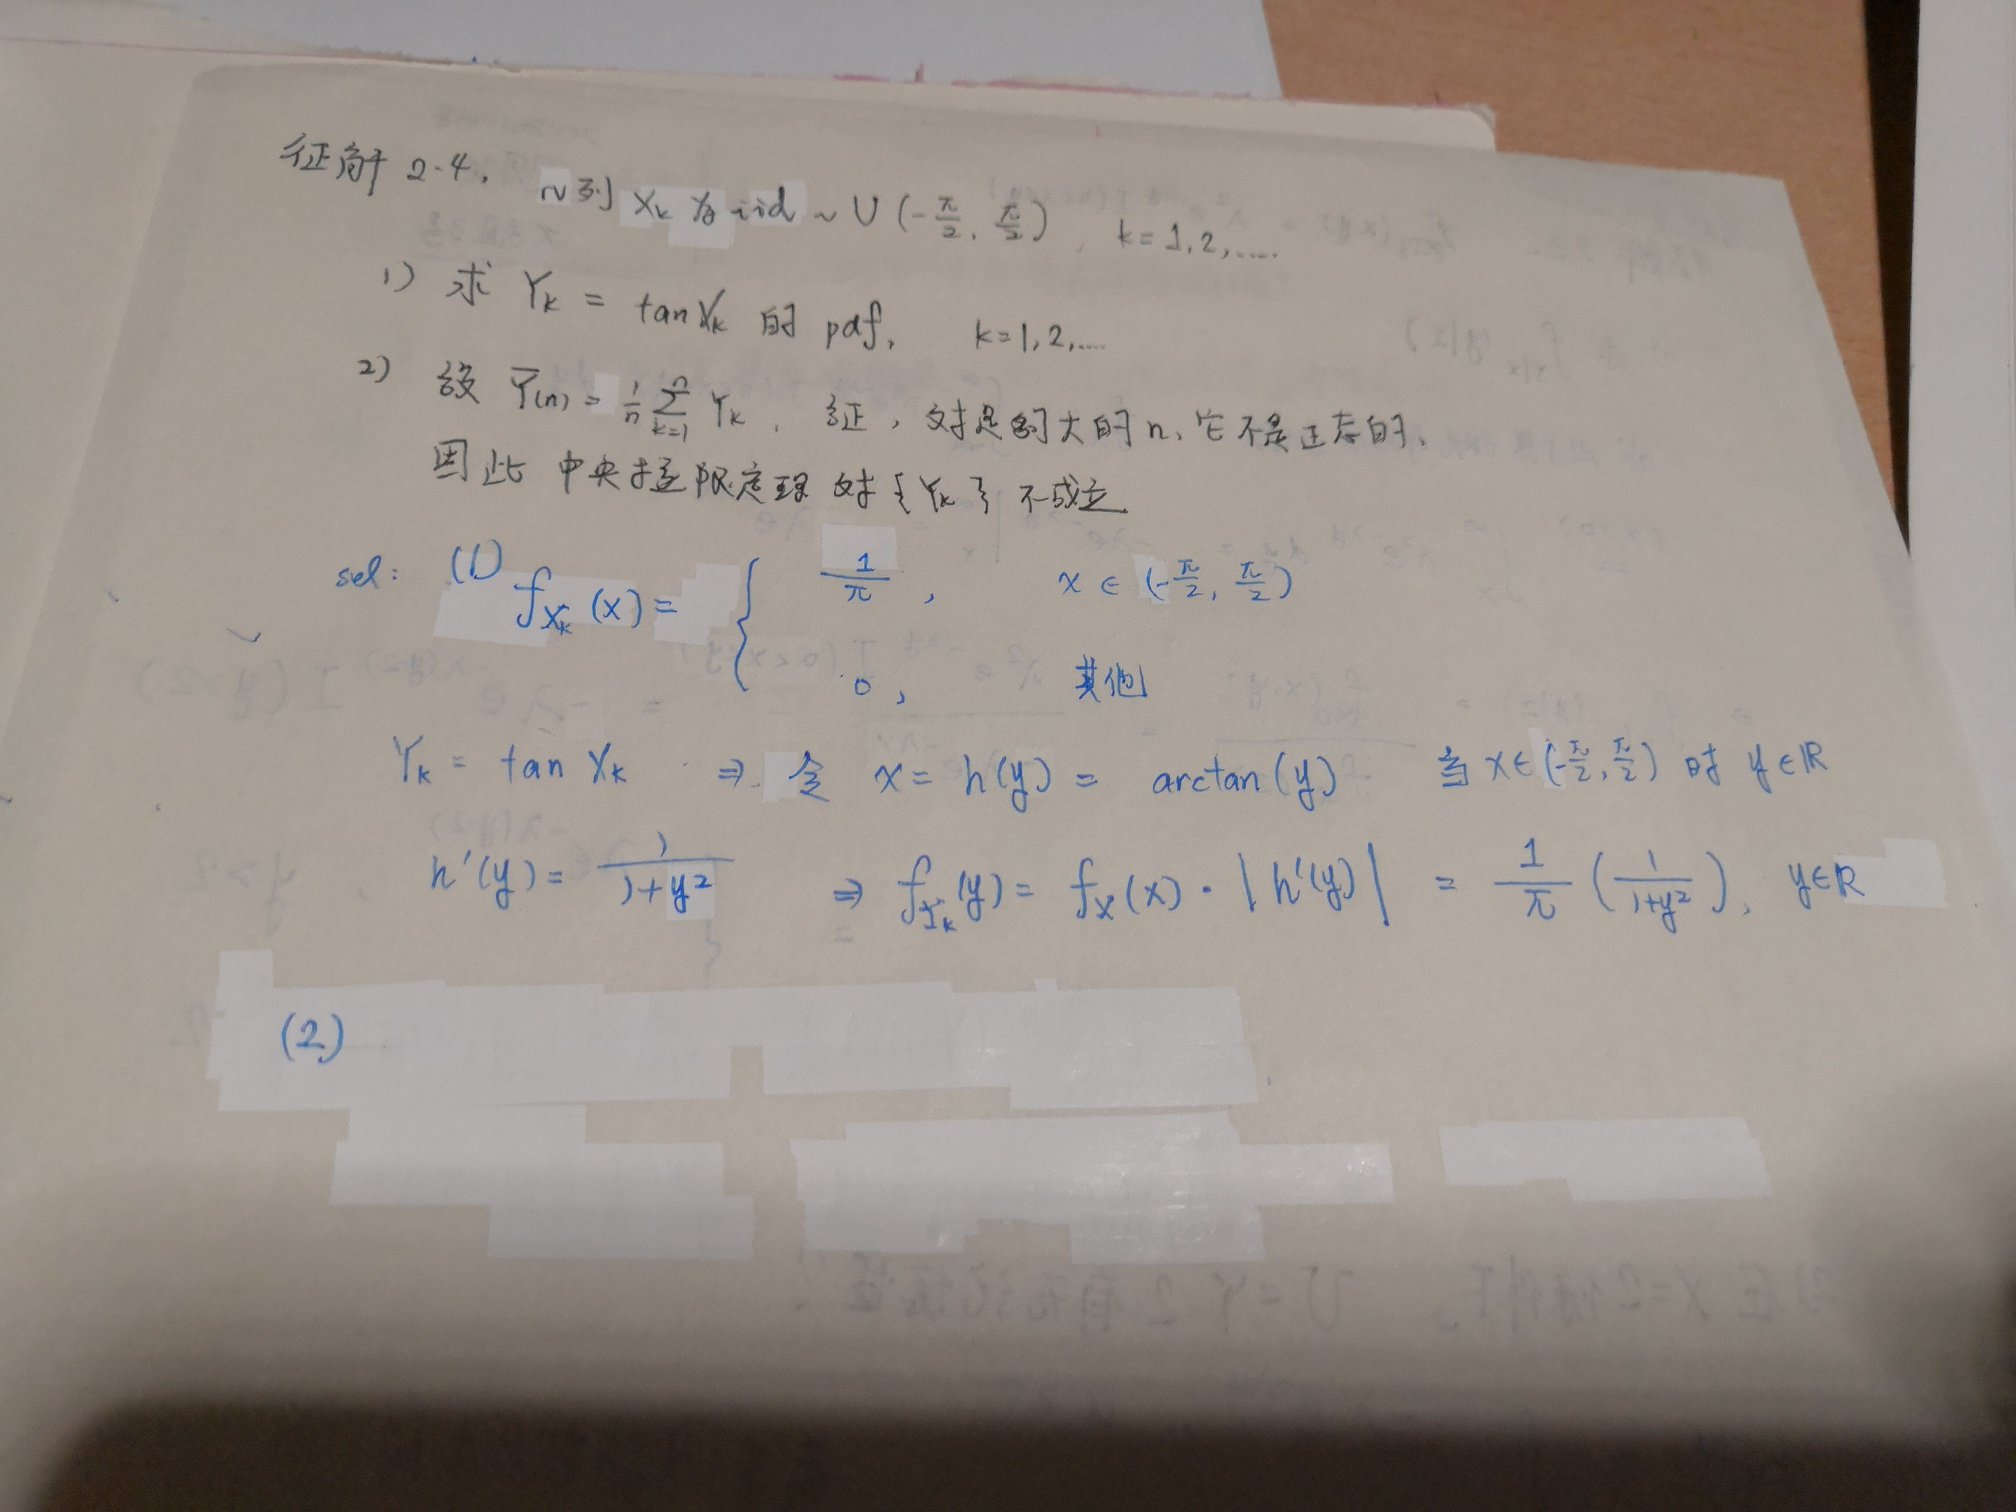 征解 2-4. 序列 Xk 为 iid ~ U (-π/2, π/2), k=1,2,.....
1) 求 Yk = tan Xk 的 pdf, k=1,2,....
2) 设 Ȳ(n) = 1/n ∑_{k=1}^{n} Yk, 证, 对足够大的 n, 它不是正态的,
因此 中央极限定理 对 {Yk} 不成立
sol: (1) f_{Xk}(x) = { 1/π , x ∈ (-π/2, π/2)
0 , 其他
Yk = tan Xk ⇒ 令 x = h(y) = arctan(y) 当 x∈(-π/2, π/2) 时 y∈ℝ
h'(y) = 1/(1+y²) ⇒ f_{Yk}(y) = f_X(x) · |h'(y)| = 1/π (1/(1+y²)), y∈ℝ
(2)